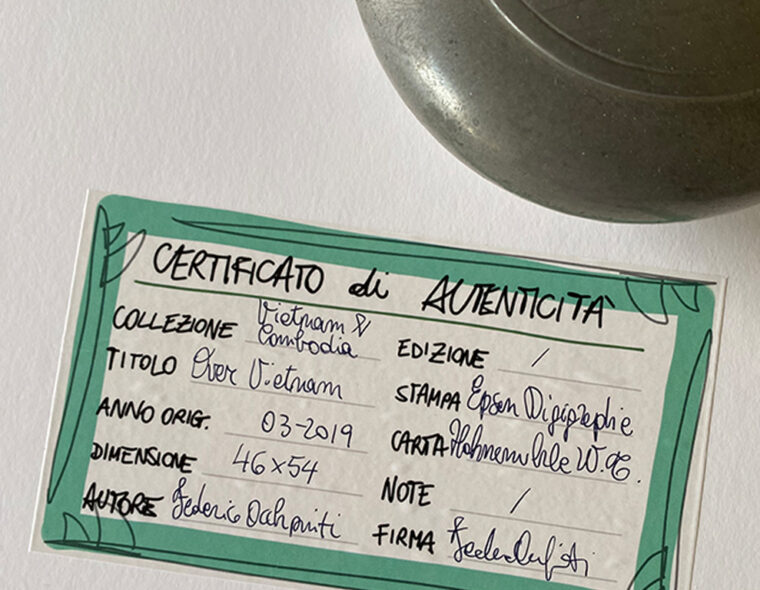 CERTIFICATO di AUTENTICITÀ
COLLEZIONE Vietnam & Cambodia
TITOLO Over Vietnam
ANNO ORIG. 03-2019
DIMENSIONE 46x54
AUTORE Federico
EDIZIONE /
STAMPA Epson Digigraphie
CARTA Hahnemuhle W.
NOTE /
FIRMA